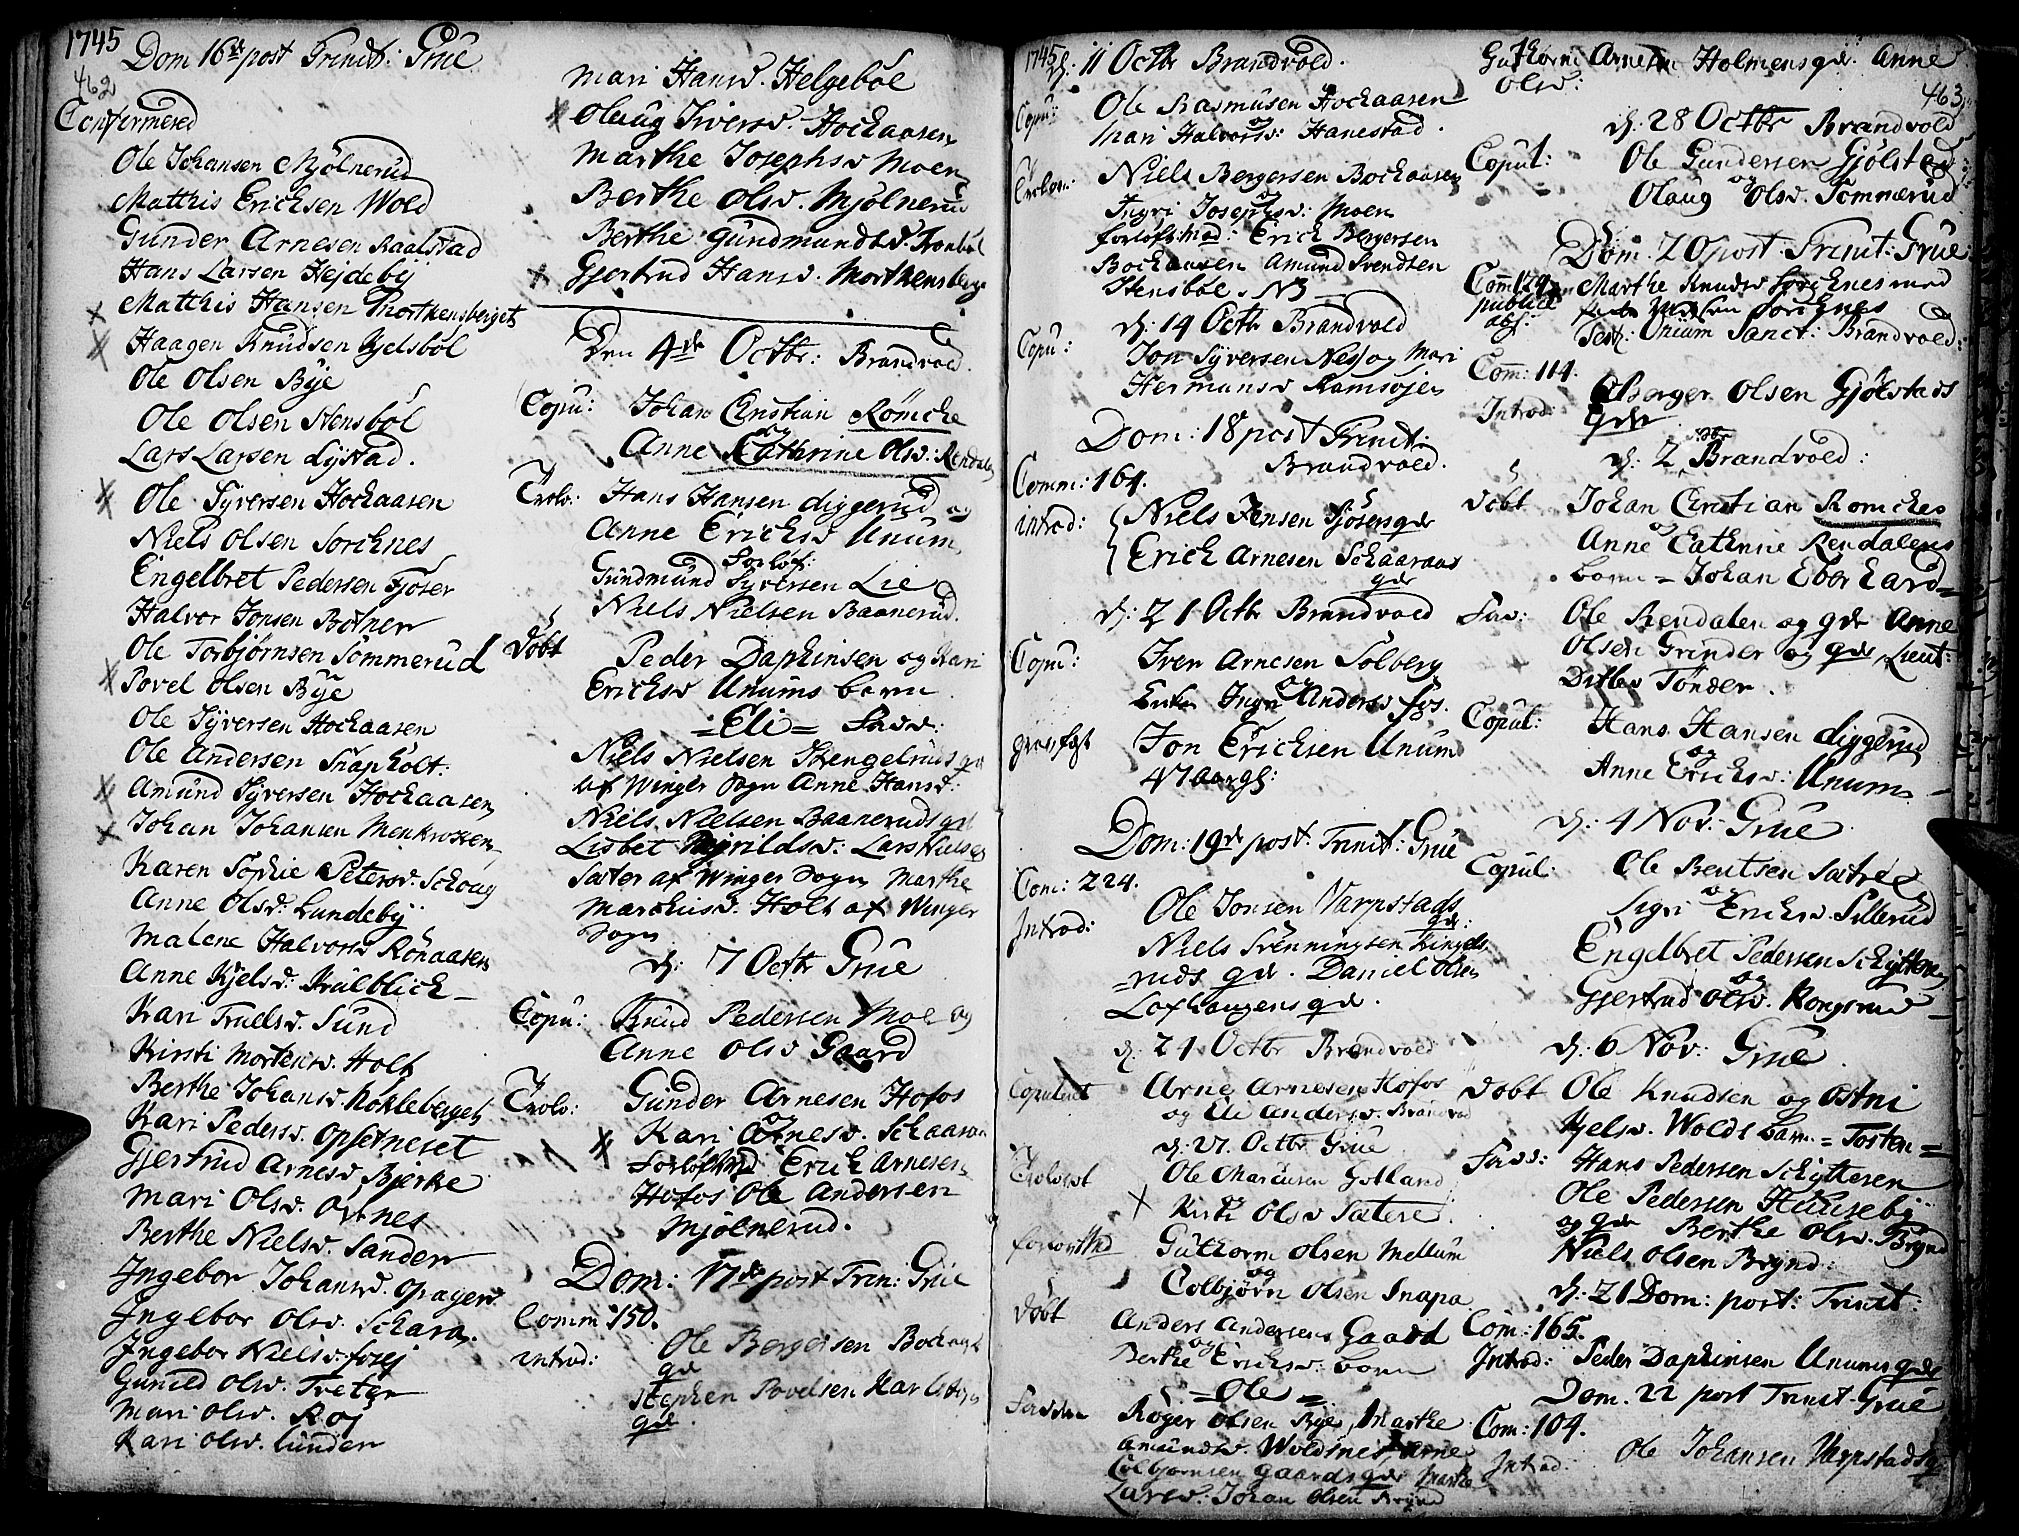 1745
Dom 16de post Trinit: Grue
462
Confirmered
Ole Johansen Mjölnerud
Matthis Erichsen Wold
Gunder Arnesen Raalstad
Hans Larsen Hejdebÿ
Matthis Hansen Morthensberget
Haagen Knudsen Kjelsböl
Ole Olsen Bÿe
Ole Olsen Stensböl
Lars Larsen Lystad.
Ole Sÿversen Hochaasen
Niels Olsen Sorchnes
Engelbret Pedersen Fjöser
Halvor Jonsen Botner
Ole Torbjörnsen Sömmerud
Povel Olsen Bÿe
Ole Sÿversen Hochaasen
Ole Andersen Snapholt.
Amund Sÿversen Hochaasen
Johan Johansen Menkroken
Karen Sophie Petersd. Schoug
Anne Olsd. Lundebÿ
Malene Halvorsd Rönaasen
Anne Kjelsd: Kulblich
Kari Truelsd. Sund
Kirsti Mortensd. Holt
Berthe Johansd. Kokleberget
Kari Pedersd. Opsetneset
Gjertrud Arnesd Bjerke
Mari Olsd. Öjenes
Berthe Nielsd. Sander
Ingebor Johansd. Opager
Ingebor Olsd. Schara
Ingebor Nielsd. Fosej
Gunild Olsd. Tveter
Mari Olsd. Roj
Kari Olsd. Lunder
Mari Hansd. Helgeböl
Olaug Iversd. Hochaasen
Marthe Josephsd Moen
Berthe Olsd. Mjölnerud
Berthe Gundmundsd. Tronböl
Gjertrud Hansd. Morthensberget
Den 4de Octbr: Brandvold.
Copu: Johan Christian Römche
og
Anne Cathrine Olsd: Rendalen
Trolv: Hans Hansen Diggerud og
Anne Erichsd Unum
Forlof:
Gundmund Sÿversen Lie
Niels Nielsen Baanerud.
Döbt Peder Daphinsen og Kari
Erichsd Unums barn
= Eli = Fadd:
Niels Nielsen Skengelruds qd
af Winger Sogn Anne Hansd:
Niels Nielsen Baaneruds qd
Lisbet Lars Nielsen
Sæter af Winger Sogn Marthe
Marchusd: Holt af Winger
Sogn
d: 7 Octbr Grue
Copu: Knud Pedersen Moe og
Anne Olsd Gaard
Trolv: Gunder Arnesen Hofos
og
Kari Arnesd. Schaaran
Forlofsmd Erich Arnesen
Hofos Ole Andersen
Mjölnerud.
Dom: 17de post Trin: Grue
Comm: 150.
introd: Ole Bergersen Bochaas
qde
Stephen Povelsen
qde.
1745 d: 11 Octbr Brandvold.
Copu: Ole Rasmusen Hochaasen
og
Mari Halvorsd: Hanestad.
Trolov: Niels Bergersen Bochaasen
og
Ingri Josephsd: Moen
forlofsmd: Erich Bergersen
Bochaasen Amund Svendsen
Stensböl.
d: 14 Octbr Brandvold
Copu: Jon Sÿversen Næs og Mari
Hermansd Ramsöjen
Dom: 18 post Trinit:
Brandvold.
Comm: 164.
introd: Niels Jensen Fjösersqde
Erich Arnesen Schaarans
qde
d: 21 Octbr Brandvold
Copu: Iver Arnesen Solberg
og
Ingri Andersd Fos.
græsfæst Jon Erichsen Unum
47 aar gl:
Dom: 19de post: Trinit: Grue
Com: 224.
Introd: Ole Jonsen Varpstads
qde.
Niels Svenningsen Ringels
=ruds qde. Daniel Olsen
Lofhaugens qde.
d: 24 Octbr Brandvold
Copuleret Arne Arnesen Hofos
og Eli Andersd. Brandvold
d: 27. Octbr Grue
Trolovet Ole Marcusen Gotland
og
Kirsti Olsd Sætere.
forlovsmd Guthorm Olsen Mellum
og
Colbjörn Olsen Snapa
Döbt Anders Andersens Gaard
og
Berthe Erichsd: barn
= Ole =
Faddere Roger Olsen Bÿe, Marthe
Amundsd Woldsnes, Arne
Colbjörnsen Gaards qde Marthe
Larsd: Johan Olsen Brÿnd
Guthorm Arnesen Holmens qde. Anne
Olsd:
463
d: 28 Octbr Brandvold
Coput: Ole Gundersen Gjölstad
og
Olaug Olsd. Sömmerud
Dom: 20 post Trinit: Grue
Com: 129
public
abs: Marthe Knudsd Sorchnes med
Sorchnes
Festo: Omium Sanct: Brandvold:
Com: 114.
Introd: Berger Olsen Gjölstads
qde
d: 2 Nobr Brandvold:
Döbt Johan Christian Romches
og
Anne Cathrine Rendalens
barn = Johan Eberhard =
Fad: Ole Rendalen og qde Anne
Olsen Grinder og qde, Lieut:
Ditlev Tönder.
Coput: Hans Hansen Diggerud
og
Anne Erichsd: Unum
d: 4 Nov: Grue
Copul: Ole Bentsen Sætre
og
Sigri Erichsd. Sillerud
Engelbret Pedersen Schÿtteren
og
Gjertrud Olsd. Rongsrud
d: 6 Nov: Grue.
Döbt Ole Knudsen og Ostni
Kjelsd. Wolds barn = Tosten =
Fadd: Hans Pedersen Schÿtteren
Ole Pedersen Hunsebÿ
og qde Berthe Olsd. Brÿnd
Niels Olsen Brÿnd:
d: 21 Dom: post: Trinit:
Com: 165.
Introd: Peder Daphinsen Unums qde
Dom. 22 post Trinit Grue
Com: 104.
Introd: Ole Johansen Varpstads